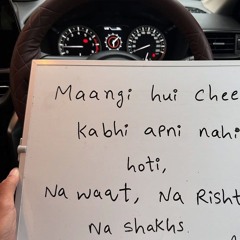 Maangi hui
kabhi apni nahi
hoti,
Na waqt, Na
Na shakhs.